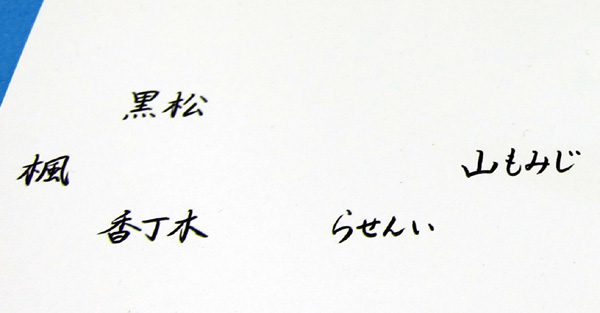 黒松
楓
山もみじ
香丁木
らせんい